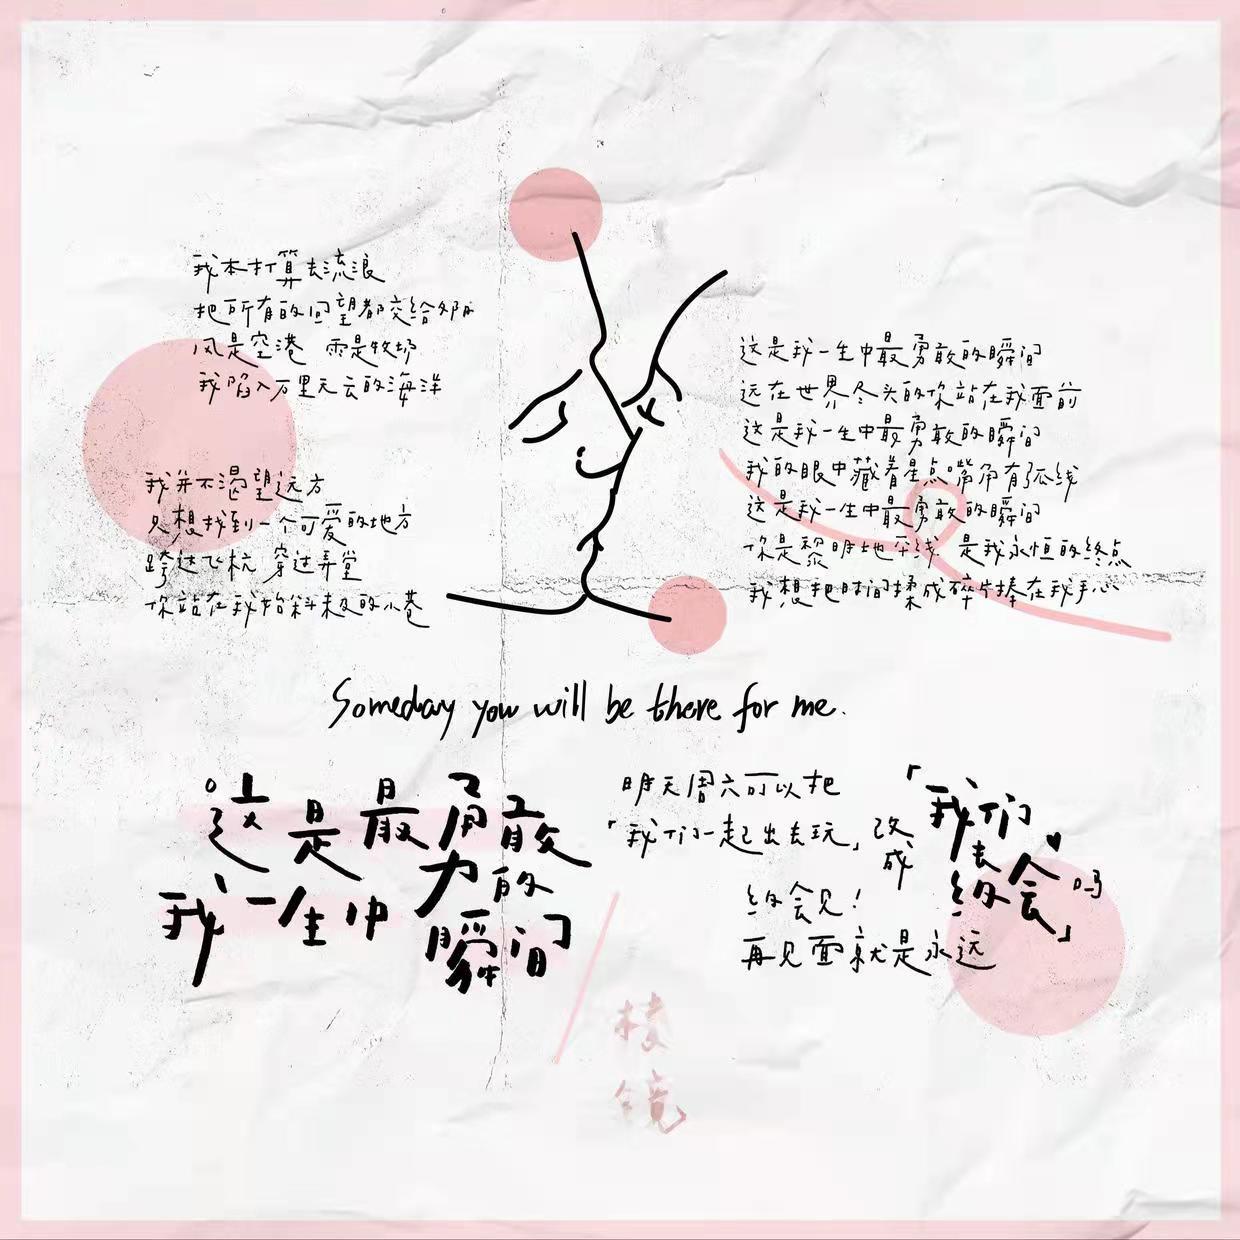 我本打算去流浪
把所有的回望都交给邻舟
风是空港 雨是牧场
我陷入万里无云的海洋
我并不渴望远方
只想找到一个可爱的地方
跨过飞机 穿过弄堂
你站在我抬斜来及的小巷
这是我一生中最勇敢的瞬间
远在世界尽头的你站在我面前
这是我一生中最勇敢的瞬间
我的眼中藏着星点嘴角有弧线
这是我一生中最勇敢的瞬间
你是黎明地平线 是我永恒的终点
我想把时间揉成碎片捧在我手心
Someday you will be there for me.
这是最勇敢的
我一生中瞬间
明天周六可以把
「我们一起出去玩」改成
「我们去约会」吗
约会见！
再见面就是永远
棱镜